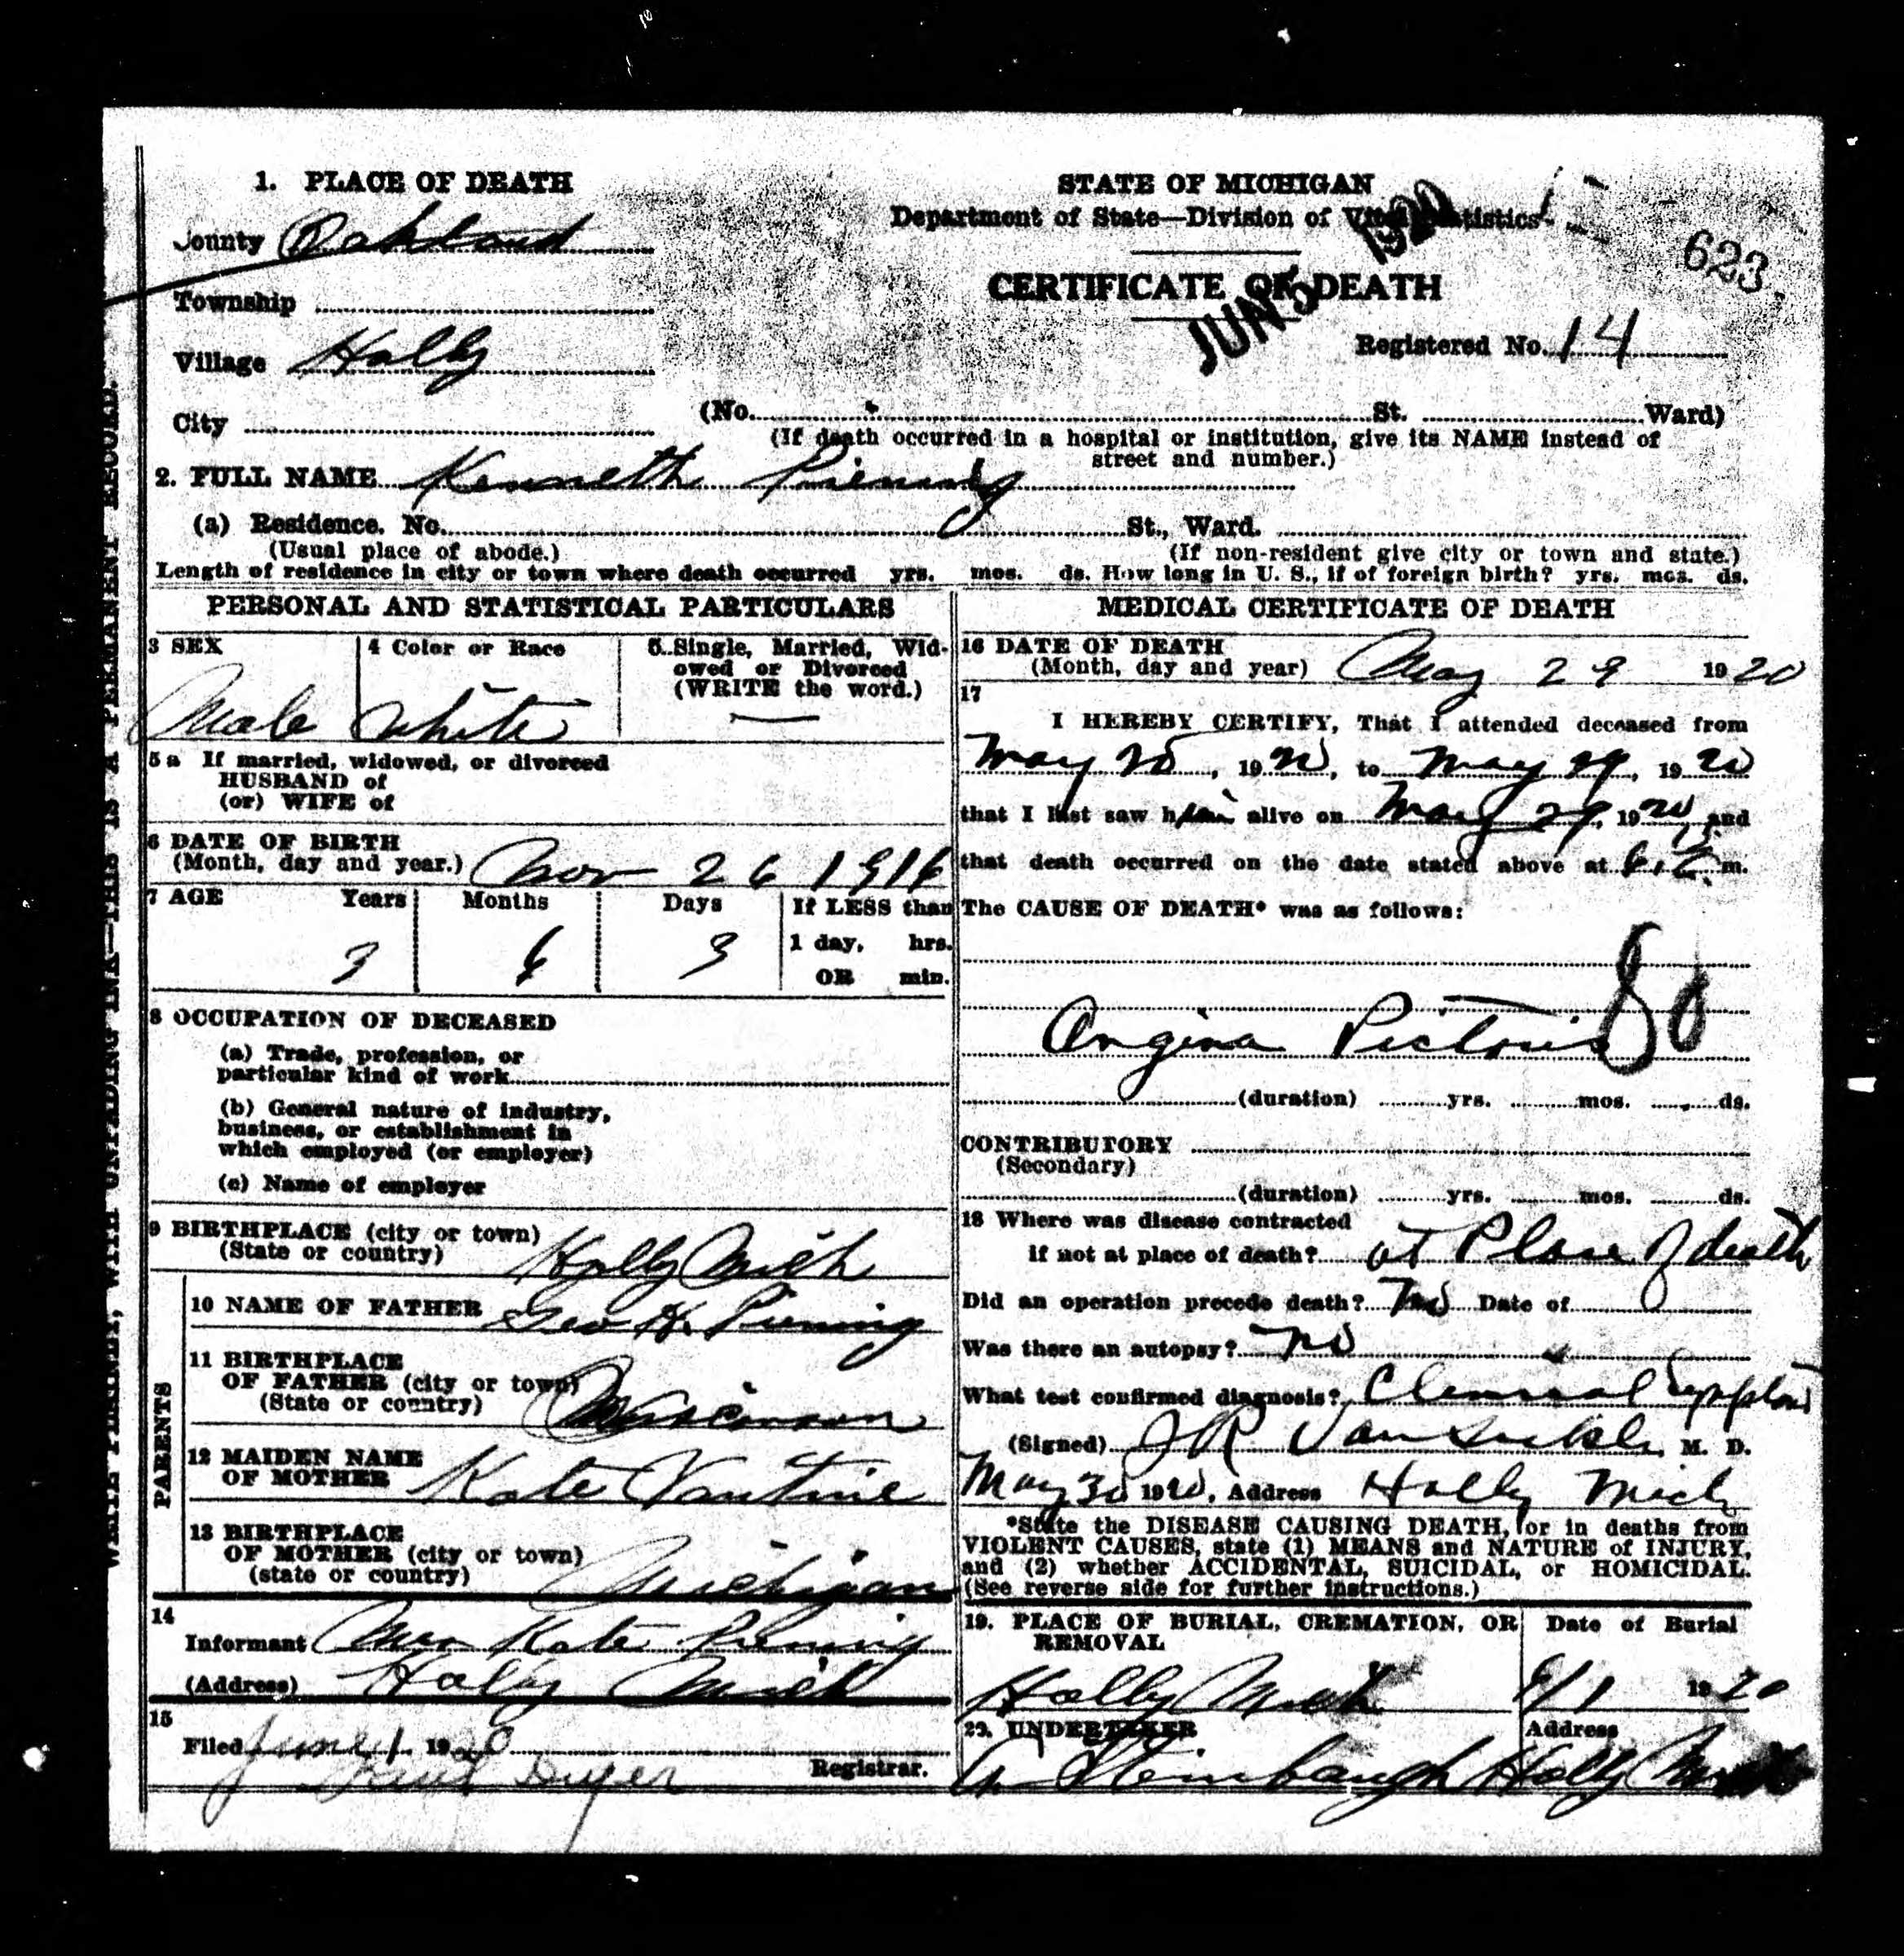 1. PLACE OF DEATH
County Oakland
Township
Village Holly
City
STATE OF MICHIGAN
Department of State—Division of Vital Statistics
CERTIFICATE OF DEATH
JUN 5 1920
623
Registered No. 14
(No. St. Ward)
(If death occurred in a hospital or institution, give its NAME instead of
street and number.)
2. FULL NAME Kenneth Piening
(a) Residence. No. St., Ward.
(Usual place of abode.) (If non-resident give city or town and state.)
Length of residence in city or town where death occurred yrs. mos. ds. How long in U. S., if of foreign birth? yrs. mos. ds.
PERSONAL AND STATISTICAL PARTICULARS
3 SEX
Male
4 Color or Race
White
5. Single, Married, Wid-
owed or Divorced
(WRITE the word.)
—
5a If married, widowed, or divorced
HUSBAND of
(or) WIFE of
6 DATE OF BIRTH
(Month, day and year.) Nov 26 1916
7 AGE Years Months Days If LESS than
1 day, hrs.
OR min.
3 6 3
8 OCCUPATION OF DECEASED
(a) Trade, profession, or
particular kind of work
(b) General nature of industry,
business, or establishment in
which employed (or employer)
(c) Name of employer
9 BIRTHPLACE (city or town)
(State or country) Holly Mich
PARENTS
10 NAME OF FATHER Geo H. Piening
11 BIRTHPLACE
OF FATHER (city or town)
(State or country) Wisconson
12 MAIDEN NAME
OF MOTHER Kate Vantine
13 BIRTHPLACE
OF MOTHER (city or town)
(state or country) Michigan
14
Informant Mrs Kate Piening
(Address) Holly Mich
15
Filed June 1 1920
Dryer Registrar.
MEDICAL CERTIFICATE OF DEATH
16 DATE OF DEATH
(Month, day and year) May 29 1920
17
I HEREBY CERTIFY, That I attended deceased from
May , 1920, to May 29, 1920
that I last saw him alive on May 29, 1920, and
that death occurred on the date stated above at m.
The CAUSE OF DEATH* was as follows:
80
Angina Pictoris
(duration) yrs. mos. ds.
CONTRIBUTORY
(Secondary)
(duration) yrs. mos. ds.
18 Where was disease contracted
if not at place of death? at Place of death
Did an operation precede death? No Date of
Was there an autopsy? no
What test confirmed diagnosis?
(Signed) J R Van Sickle, M. D.
May 30 1920, Address Holly Mich
*State the DISEASE CAUSING DEATH, or in deaths from
VIOLENT CAUSES, state (1) MEANS and NATURE of INJURY,
and (2) whether ACCIDENTAL, SUICIDAL, or HOMICIDAL.
(See reverse side for further instructions.)
19. PLACE OF BURIAL, CREMATION, OR
REMOVAL
Holly Mich
Date of Burial
6/1 1920
20. UNDERTAKER
Steinbaugh
Address
Holly Mich
WITH UNFADING INK—THIS IS A PERMANENT RECORD.